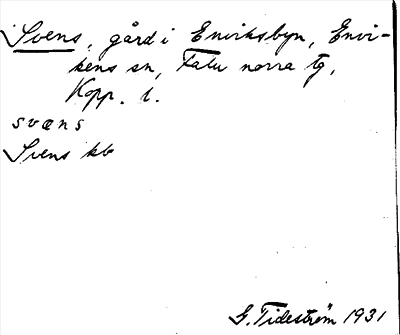 Svens, gård i Enviksbyn, Envi-
kens sn, Falu norra tg,
Kopp. l.
svæns
Svens kb
G. Tideström 1931